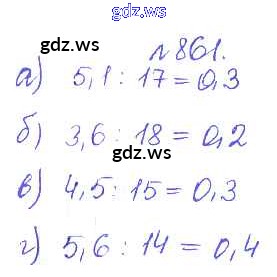 gdz.ws
gdz.ws
№861.
а) 5,1 : 17 = 0,3
б) 3,6 : 18 = 0,2
gdz.ws
в) 4,5 : 15 = 0,3
г) 5,6 : 14 = 0,4